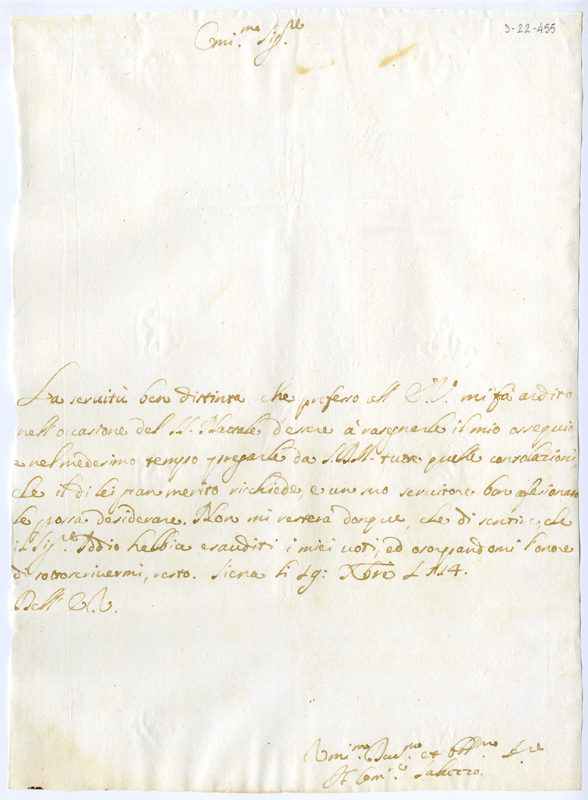 3-22-455
Emi:^mo Sig:^re
La servitù ben distinta che professo all' V.E. mi fà ardito
nell'occasione del SS. Nattale d'esserne à rasegnarle il mio ossequio
e nel medesimo tempo pregarle da S.D.M. tutte quelle consolationi
che il di lei gran merito richiede, e un suo servitore ben afesionato
le possa desiderare. Non mi resterà donque, che di sentire, che
il Sig:^re Iddio hebbia esauditi i miei voti, ed
l'onore
di sottoscrivermi, resto. Siena li 19: Xbre 1714.
Dell' V.E.
Umi:^mo et Obb^mo S.^re
Il